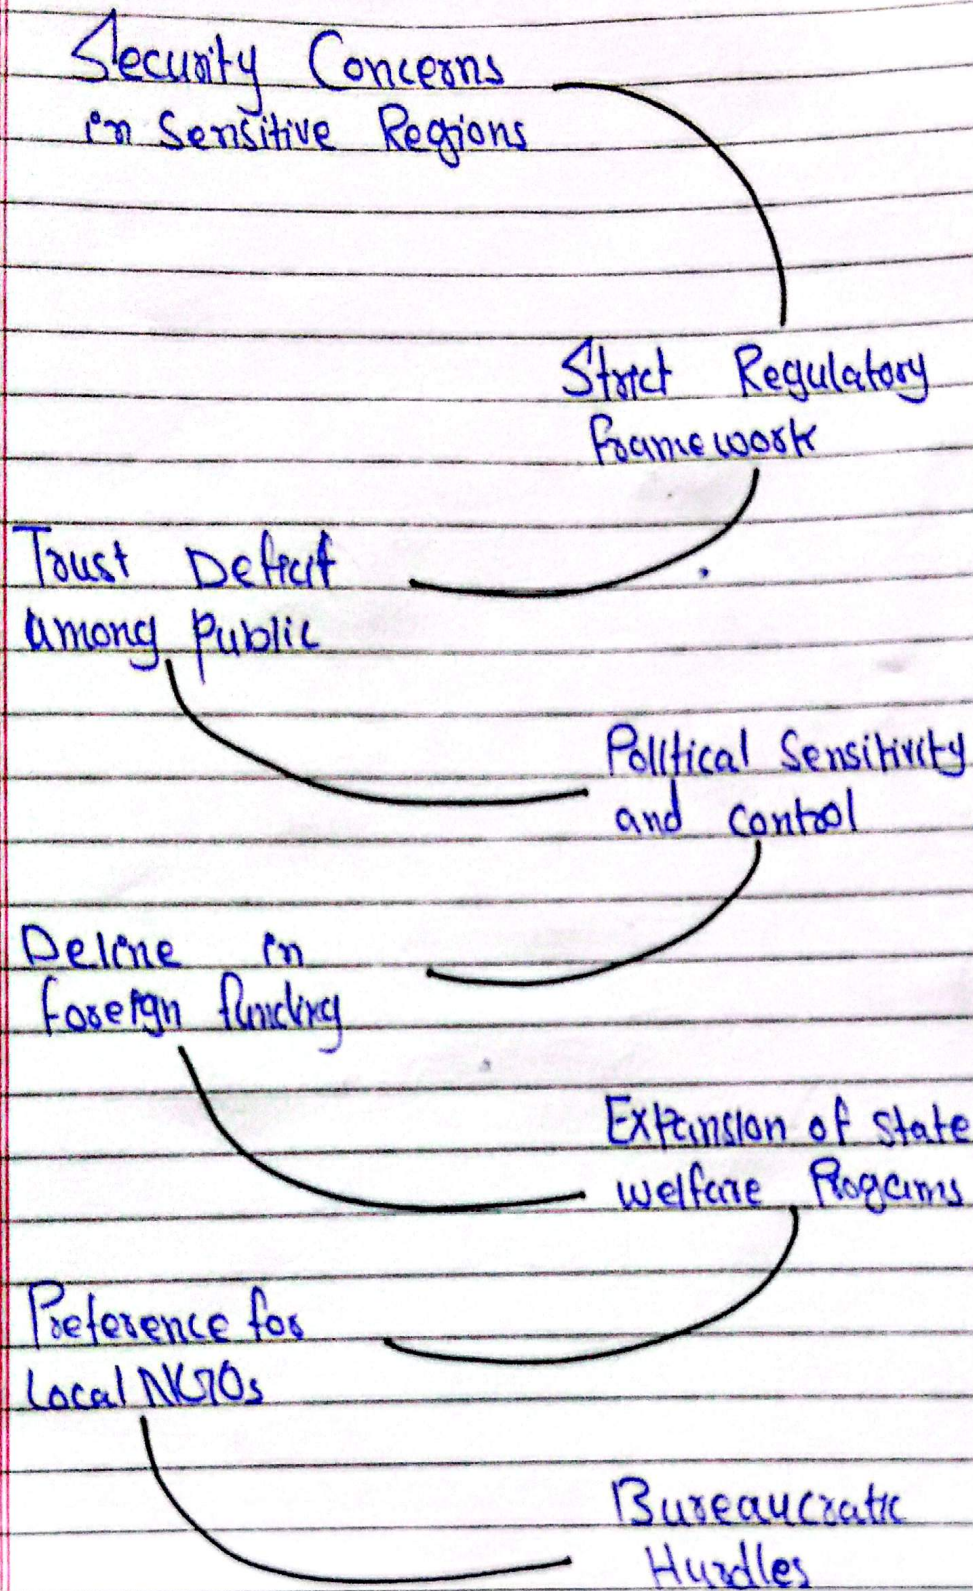 Security Concerns
in Sensitive Regions
Strict Regulatory
framework
Trust Deficit
among public
Political Sensitivity
and control
Deline in
foreign funding
Expansion of state
welfare Progams
Preference for
Local NGOs
Bureaucratic
Hurdles